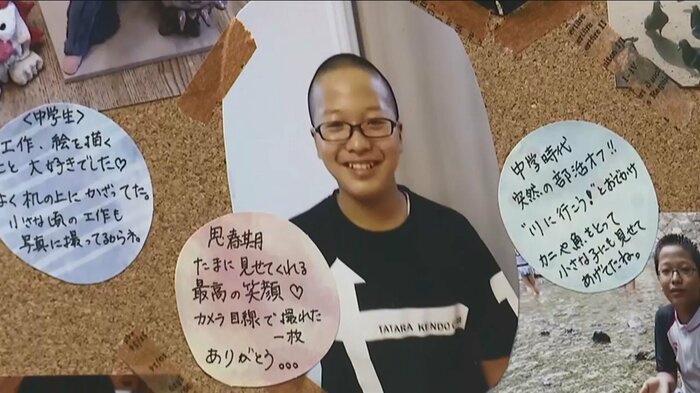 〈中学生〉
工作、絵を描く
こと 大好きでした♡
よく机の上にかざってた。
小さな頃の工作も
写真に撮ってるからネ。
思春期
たまに見せてくれる
最高の笑顔♡
カメラ目線で撮れた
一枚
ありがとう...
TATARA KENDO
中学時代
突然の部活オフ!!
"川に行こう!"とおでかけ
カニや魚をとって
小さな子にも見せて
あげてたね。